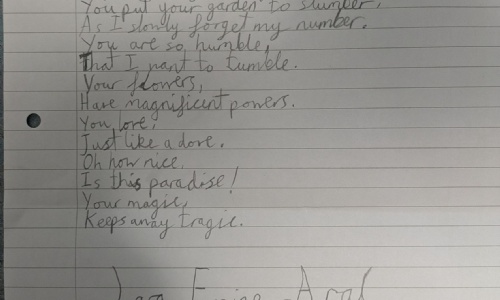 You put your garden to slumber,
As I slowly forget my number.
You are so humble,
That I want to tumble.
Your flowers,
Have magnificent powers.
You love,
Just like a dove.
Oh how nice,
Is this paradise!
Your magic,
Keeps away tragic.